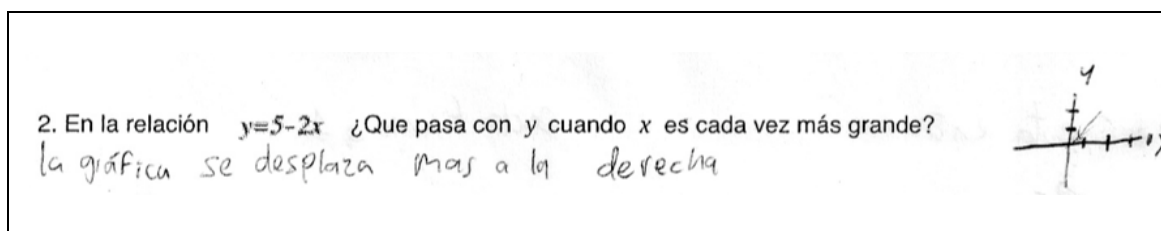 y
2. En la relación y=5-2x ¿Que pasa con y cuando x es cada vez más grande?
la gráfica se desplaza mas a la derecha